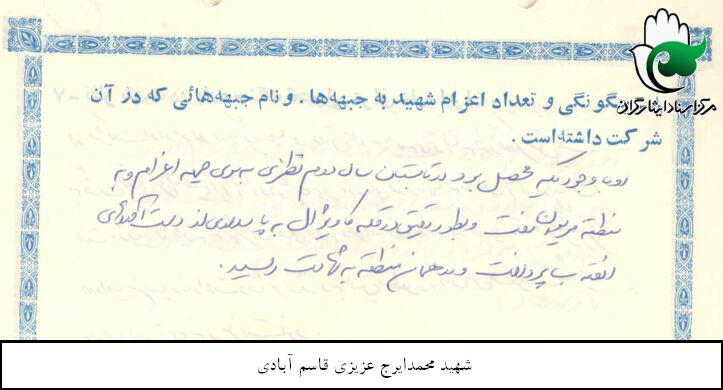 مرکز اسناد ایثارگران
۷- چگونگی و تعداد اعزام شهید به جبهه‌ها . و نام جبهه‌هائی که در آن
شرکت داشته‌است .
با وجودیکه محصل بود در تابستان سال دوم نظری به سوی جبهه اعزام و به
منطقه مریوان رفت و بطور دقیق در قله کاویژال به پاسداری از دست‌آوردهای
انقلاب پرداخت و در همان منطقه به شهادت رسید .
شهید محمدایرج عزیزی قاسم آبادی